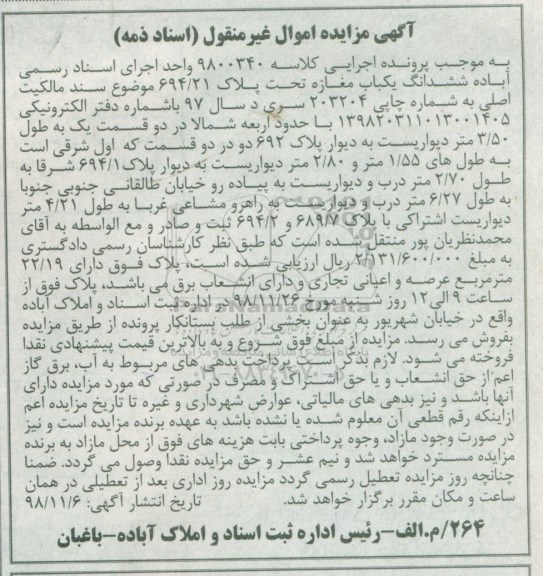 آگهی مزایده اموال غیرمنقول (اسناد ذمه)
به موجب پرونده اجرایی کلاسه ۹۸۰۰۳۴۰ واحد اجرای اسناد رسمی
آباده ششدانگ یکباب مغازه تحت پلاک ۶۹۴/۲۱ موضوع سند مالکیت
اصلی به شماره چاپی ۲۰۳۲۰۴ سری د سال ۹۷ باشماره دفتر الکترونیکی
۱۳۹۸۲۰۳۱۱۰۱۳۰۰۱۴۰۵ با حدود اربعه شمالا در دو قسمت یک به طول
۳/۵۰ متر دیواریست به دیوار پلاک ۶۹۲ دو در دو قسمت که اول شرقی است
به طول های ۱/۵۵ متر و ۲/۸۰ متر دیواریست به دیوار پلاک ۶۹۴/۱ شرقا به
طول ۲/۷۰ متر درب و دیواریست به پیاده رو خیابان طالقانی جنوبی جنوبا
به طول ۶/۲۷ متر درب و دیواریست به راهرو مشاعی غربا به طول ۴/۲۱ متر
دیواریست اشتراکی با پلاک ۶۸۹/۷ و ۶۹۴/۲ ثبت و صادر و مع الواسطه به آقای
محمدنظریان پور منتقل شده است که طبق نظر کارشناسان رسمی دادگستری
به مبلغ ۲/۱۳۱/۶۰۰/۰۰۰ ریال ارزیابی شده است، پلاک فوق دارای ۲۲/۱۹
مترمربع عرصه و اعیانی تجاری و دارای انشعاب برق می باشد، پلاک فوق از
ساعت ۹ الی ۱۲ روز شنبه مورخ ۹۸/۱۱/۲۶ در اداره ثبت اسناد و املاک آباده
واقع در خیابان شهریور به عنوان بخشی از طلب بستانکار پرونده از طریق مزایده
بفروش می رسد. مزایده از مبلغ فوق شروع و به بالاترین قیمت پیشنهادی نقدا
فروخته می شود. لازم بذکر است پرداخت بدهی های مربوط به آب، برق گاز
اعم از حق انشعاب و یا حق اشتراک و مصرف در صورتی که مورد مزایده دارای
آنها باشد و نیز بدهی های مالیاتی، عوارض شهرداری و غیره تا تاریخ مزایده اعم
ازاینکه رقم قطعی آن معلوم شده یا نشده باشد به عهده برنده مزایده است و نیز
در صورت وجود مازاد، وجوه پرداختی بابت هزینه های فوق از محل مازاد به برنده
مزایده مسترد خواهد شد و نیم عشر و حق مزایده نقدا وصول می گردد. ضمنا
چنانچه روز مزایده تعطیل رسمی گردد مزایده روز اداری بعد از تعطیلی در همان
ساعت و مکان مقرر برگزار خواهد شد. تاریخ انتشار آگهی: ۹۸/۱۱/۶
۲۶۴/م.الف-رئیس اداره ثبت اسناد و املاک آباده-باغبان